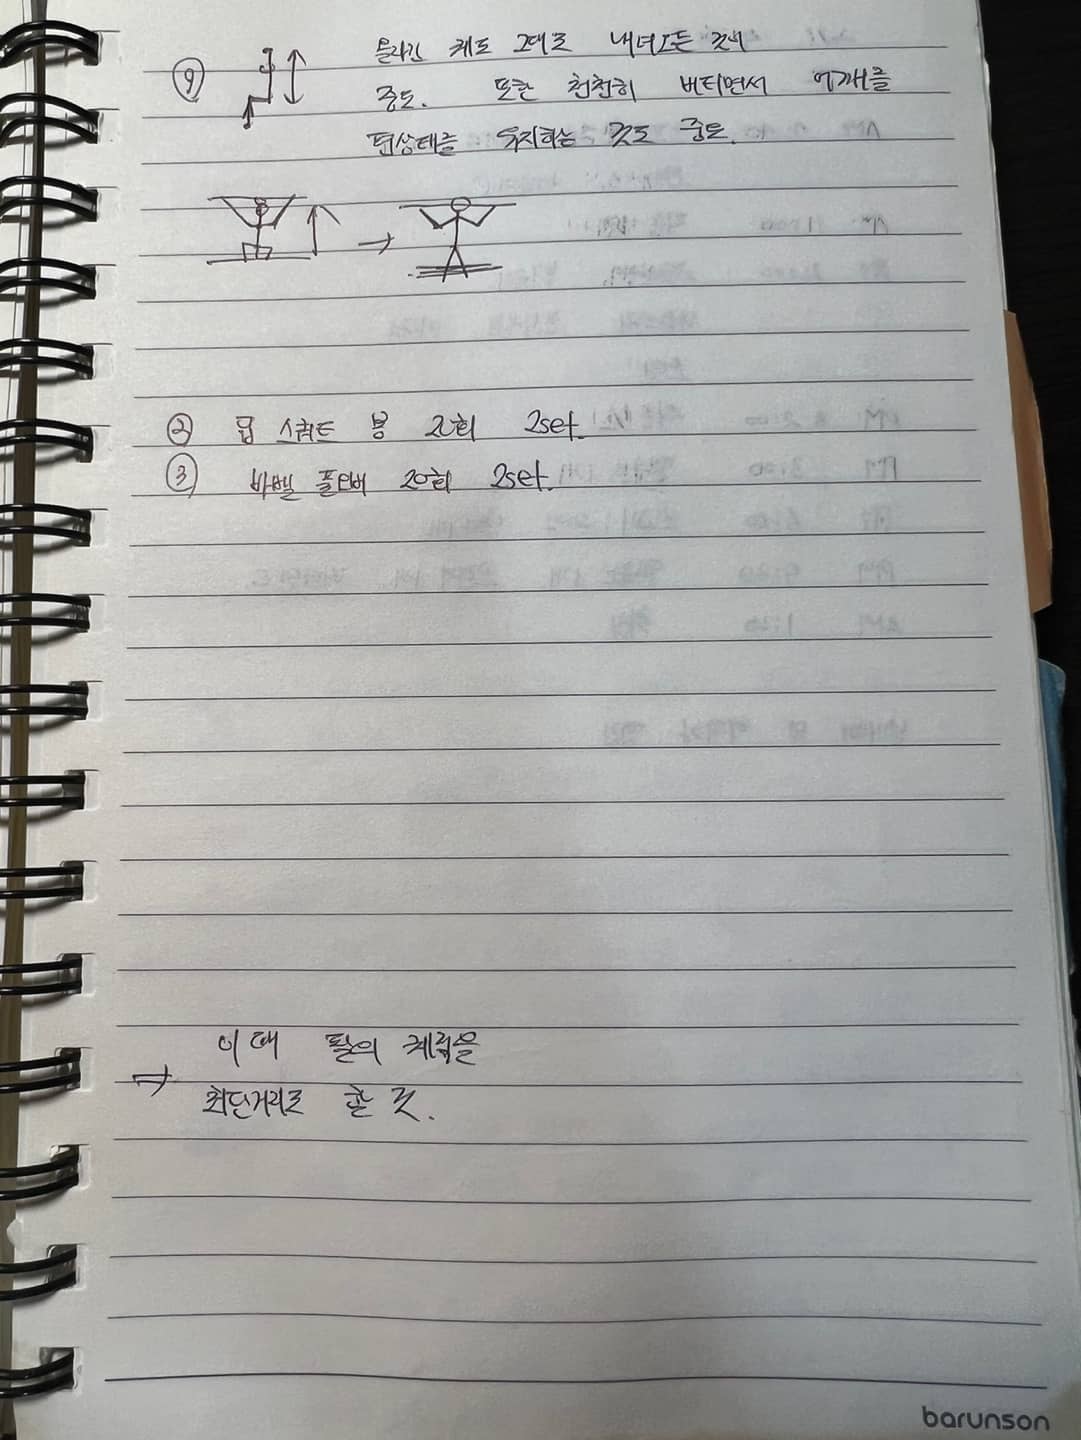 ①
올라간 궤도 그대로 내려오는 것이
중요. 또한 천천히 버티면서 어깨를
편상태를 유지하는 것도 중요.
② 스쿼트 봉 20회 2set.
③ 바벨 풀오버 20회 2set.
이때 팔의 궤적을
⇒ 최단거리로 할 것.
barunson